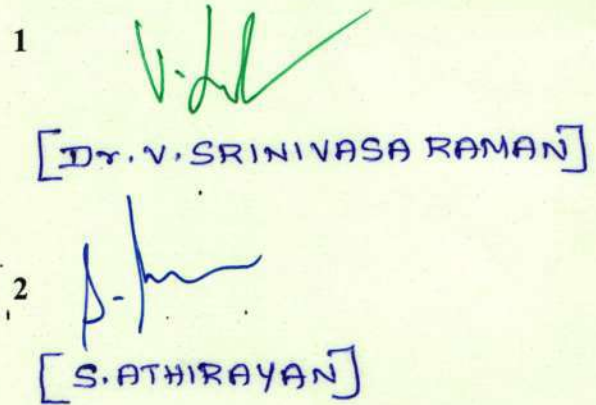 1
[Dr. V. SRINIVASA RAMAN]
2
[S. ATHIRAYAN]